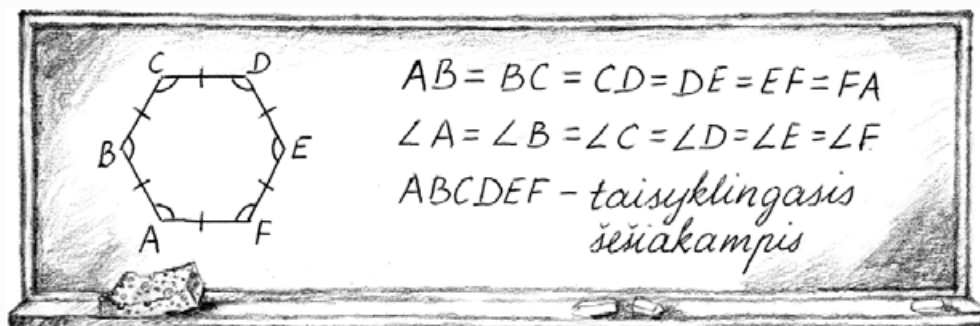 C D
B E
A F
AB = BC = CD = DE = EF = FA
∠A = ∠B = ∠C = ∠D = ∠E = ∠F
ABCDEF – taisyklingasis
šešiakampis